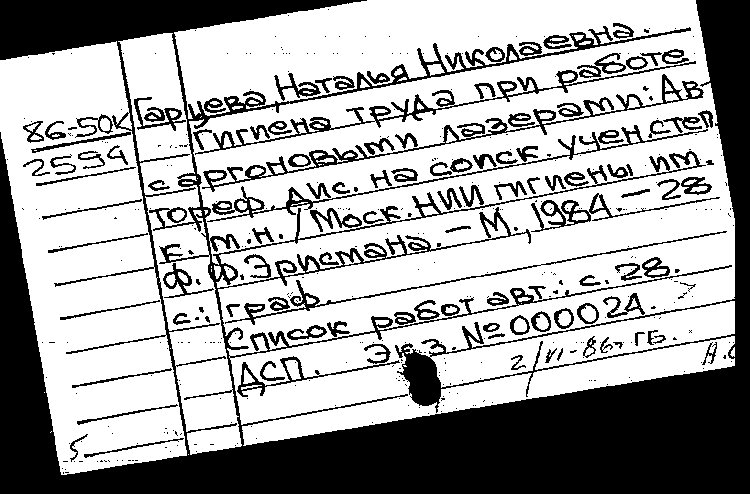 Гарцева, Наталья Николаевна.
86-50К
2594
Гигиена труда при работе
с аргоновыми лазерами: Ав-
тореф. дис. на соиск. учен. степ.
к. м. н. / Моск. НИИ гигиены им.
Ф. Ф. Эрисмана. — М., 1984. — 28
с.: граф.
Список работ авт.: с. 28.
ДСП. Экз. № 000024.
2/VI-86г. ГБ.
5